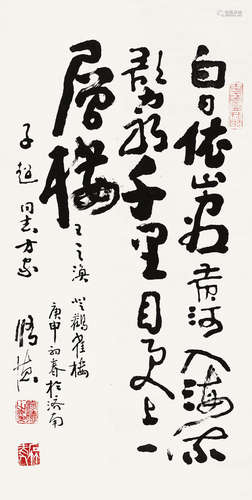 白日依山尽黄河入海流
欲穷千里目更上一
层楼
王之涣登鹳雀楼
庚申初春于济南
子超同志方家